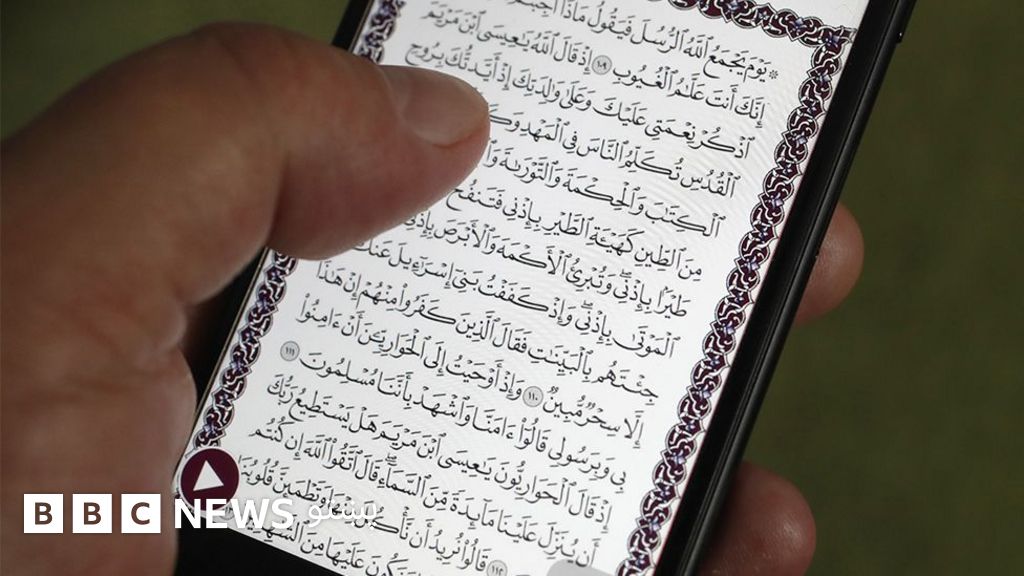 ۞ يَوْمَ يَجْمَعُ ٱللَّهُ ٱلرُّسُلَ فَيَقُولُ مَاذَآ أُجِبْتُمْ
إِنَّكَ أَنتَ عَلَّٰمُ ٱلْغُيُوبِ ١٠٩ إِذْ قَالَ ٱللَّهُ يَٰعِيسَى ٱبْنَ مَرْيَمَ
ٱذْكُرْ نِعْمَتِي عَلَيْكَ وَعَلَىٰ وَٰلِدَتِكَ إِذْ أَيَّدتُّكَ بِرُوحِ
ٱلْقُدُسِ تُكَلِّمُ ٱلنَّاسَ فِي ٱلْمَهْدِ
ٱلْكِتَٰبَ وَٱلْحِكْمَةَ وَٱلتَّوْرَىٰةَ
مِنَ ٱلطِّينِ كَهَيْـَٔةِ ٱلطَّيْرِ بِإِذْنِي فَتَنفُخُ
طَيْرًۢا بِإِذْنِي وَتُبْرِئُ ٱلْأَكْمَهَ وَٱلْأَبْرَصَ بِإِذْنِي
ٱلْمَوْتَىٰ بِإِذْنِي وَإِذْ كَفَفْتُ بَنِيٓ إِسْرَٰٓءِيلَ عَنكَ
جِئْتَهُم بِٱلْبَيِّنَٰتِ فَقَالَ ٱلَّذِينَ كَفَرُوا۟ مِنْهُمْ إِنْ هَٰذَآ
إِلَّا سِحْرٌ مُّبِينٌ ١١٠ وَإِذْ أَوْحَيْتُ إِلَى ٱلْحَوَارِيِّـۧنَ أَنْ ءَامِنُوا۟
بِي وَبِرَسُولِي قَالُوٓا۟ ءَامَنَّا وَٱشْهَدْ بِأَنَّنَا مُسْلِمُونَ ١١١
إِذْ قَالَ ٱلْحَوَارِيُّونَ يَٰعِيسَى ٱبْنَ مَرْيَمَ هَلْ يَسْتَطِيعُ رَبُّكَ
أَن يُنَزِّلَ عَلَيْنَا مَآئِدَةً مِّنَ ٱلسَّمَآءِ قَالَ ٱتَّقُوا۟ ٱللَّهَ إِن كُنتُم
١١٢ قَالُوا۟ نُرِيدُ أَن نَّأْكُلَ وَتَطْمَئِنَّ قُلُوبُنَا
وَنَكُونَ عَلَيْهَا مِنَ ٱلشَّٰهِدِينَ
BBC NEWS پښتو